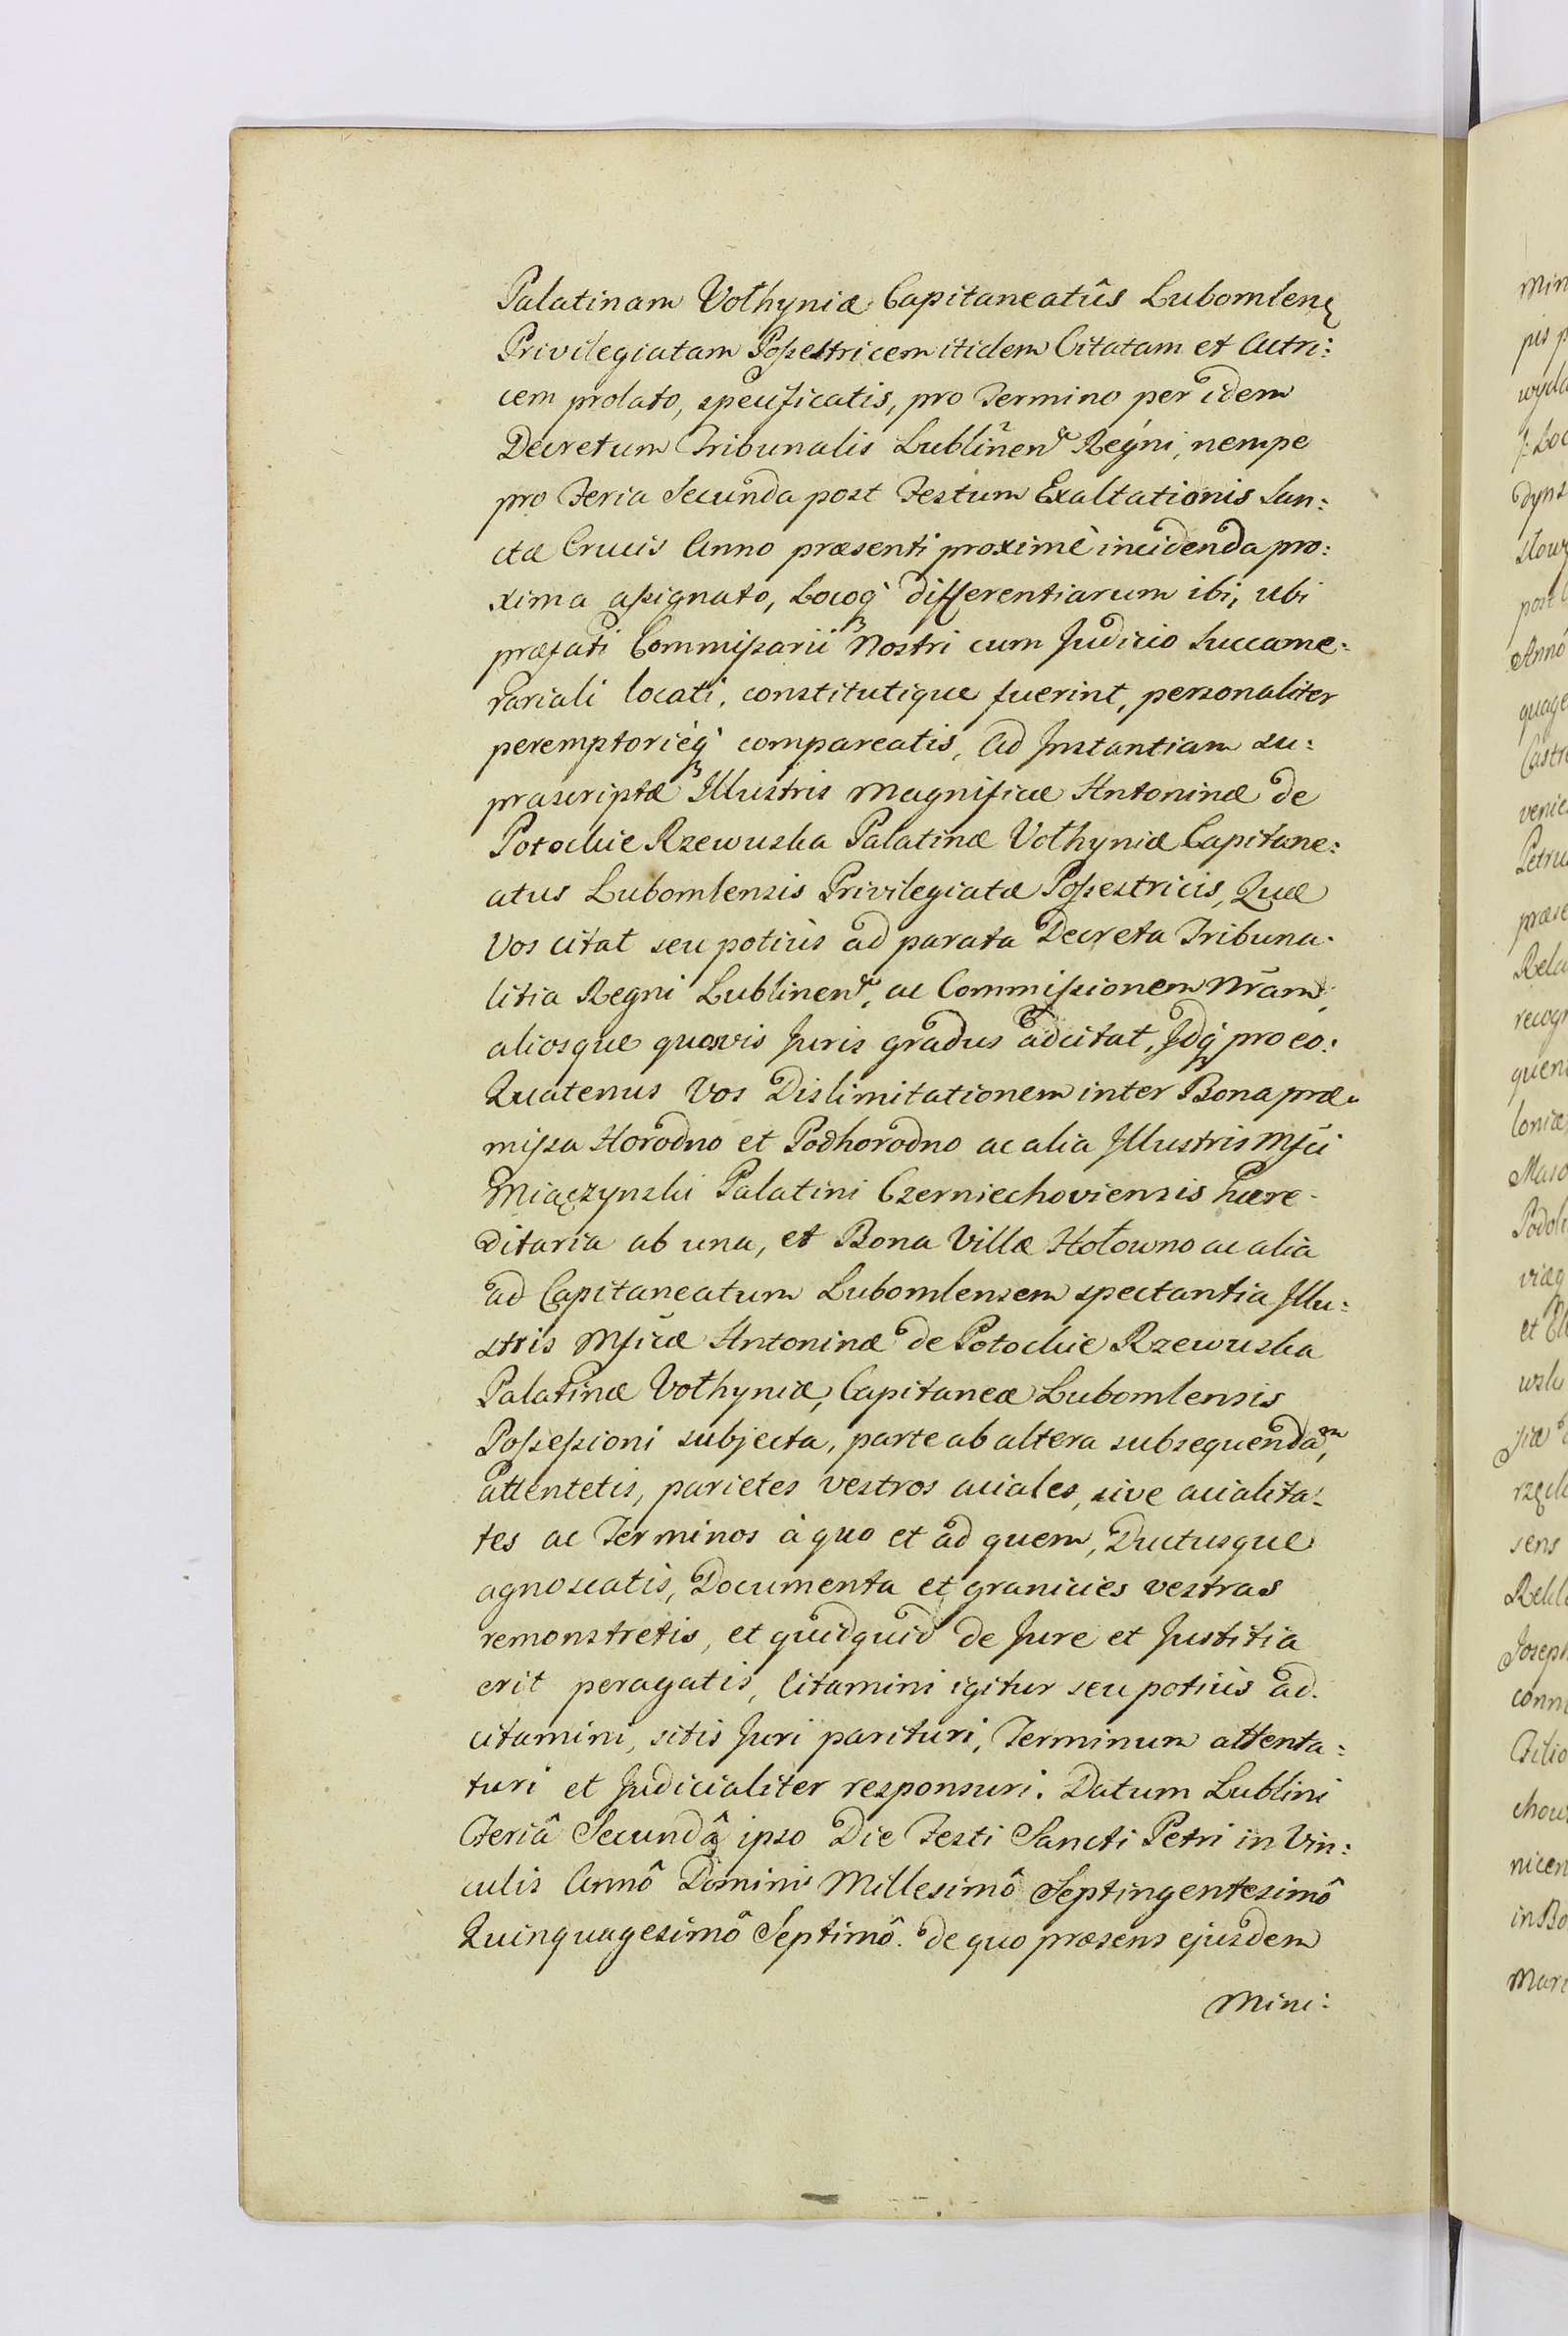 Palatinam Vołhyniæ Capitaneatûs Lubomlen
Privilegiatam Possestricem itidem Citatam et Actri:
cem prolato, specificatis, pro Termino per idem
Decretum Tribunalis Lublinen Regni, nempe
pro Feria Secunda post Festum Exaltationis San:
ctæ Crucis Anno præsenti proximè incidenda pro:
xima assignato, Locoq differentiarum ibi, ubi
præfati Commissarii Nostri cum Judicio Succame:
rariali locati, constitutique fuerint, personaliter
peremptorièq compareatis, Ad Instantiam su:
prascriptæ Illustris Magnificæ Antoninæ de
Potockie Rzewuska Palatinæ Vołhyniæ Capitane:
atus Lubomlensis Privilegiatæ Possestricis, Quæ
Vos citat seu potiùs ad parata Decreta Tribuna:
litia Regni Lublinen, ac Commissionem Nrãm,
aliosque quosvis Juris gradus adcitat, Idq pro eo:
Quatenus Vos Dislimitationem inter Bona præ:
missa Horodno et Podhorodno ac alia Illustris Mfci
Miączynski Palatini Czerniechoviensis hære:
ditaria ab una, et Bona Villæ Hołowno ac alia
ad Capitaneatum Lubomlensem spectantia Illu:
stris Mficæ Antoninæ de Potockie Rzewuska
Palatinæ Vołhyniæ, Capitaneæ Lubomlensis
Possessioni subjecta, parte ab altera subsequendam,
attentetis, parietes vestros aciales, sive acialita:
tes ac Terminos à quo et ad quem, Ductusque
agnoscatis, Documenta et granicies vestras
remonstretis, et quidquid de Jure et Justitia
erit peragatis, Citamini igitur seu potiùs ad:
citamini, sitis Juri parituri, Terminum attenta:
turi et Judicialiter responsuri. Datum Lublini
Feriâ Secundâ ipso Die Festi Sancti Petri in Vin:
culis Annô Domini Millesimô Septingentesimô
Quinquagesimô Septimô. de quo præsens ejusdem
Mini: